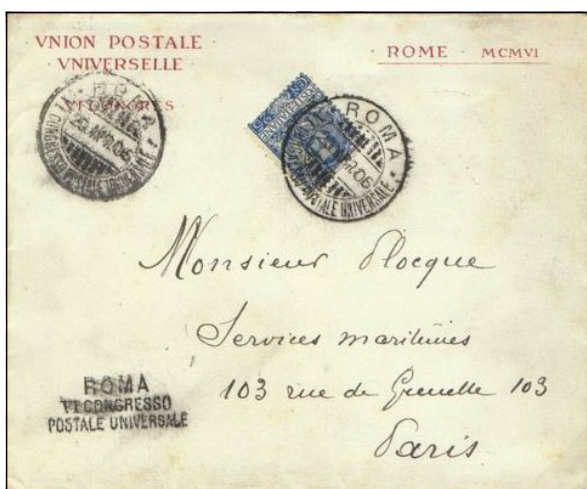 VNION POSTALE
VNIVERSELLE
ROME · MCMVI
ROMA
CONGRESSO POSTALE UNIVERSALE
ROMA
POSTALE UNIVERSALE
Monsieur Plocque
Services maritimes
103 rue de Grenelle 103
Paris
ROMA
VI CONGRESSO
POSTALE UNIVERSALE